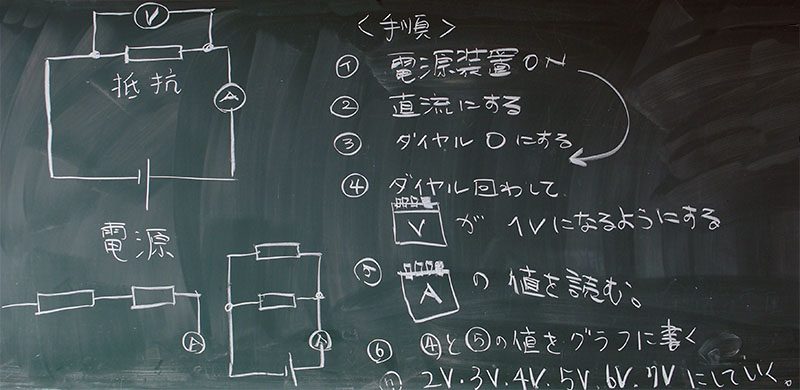 V
抵抗
A
電源
A
A
<手順>
① 電源装置ON
② 直流にする
③ ダイヤル0にする
④ ダイヤル回わして
V が 1Vになるようにする
⑤ A の 値を読む。
⑥ ④と⑤の値をグラフに書く
⑦ 2V・3V・4V・5V・6V・7V にしていく。